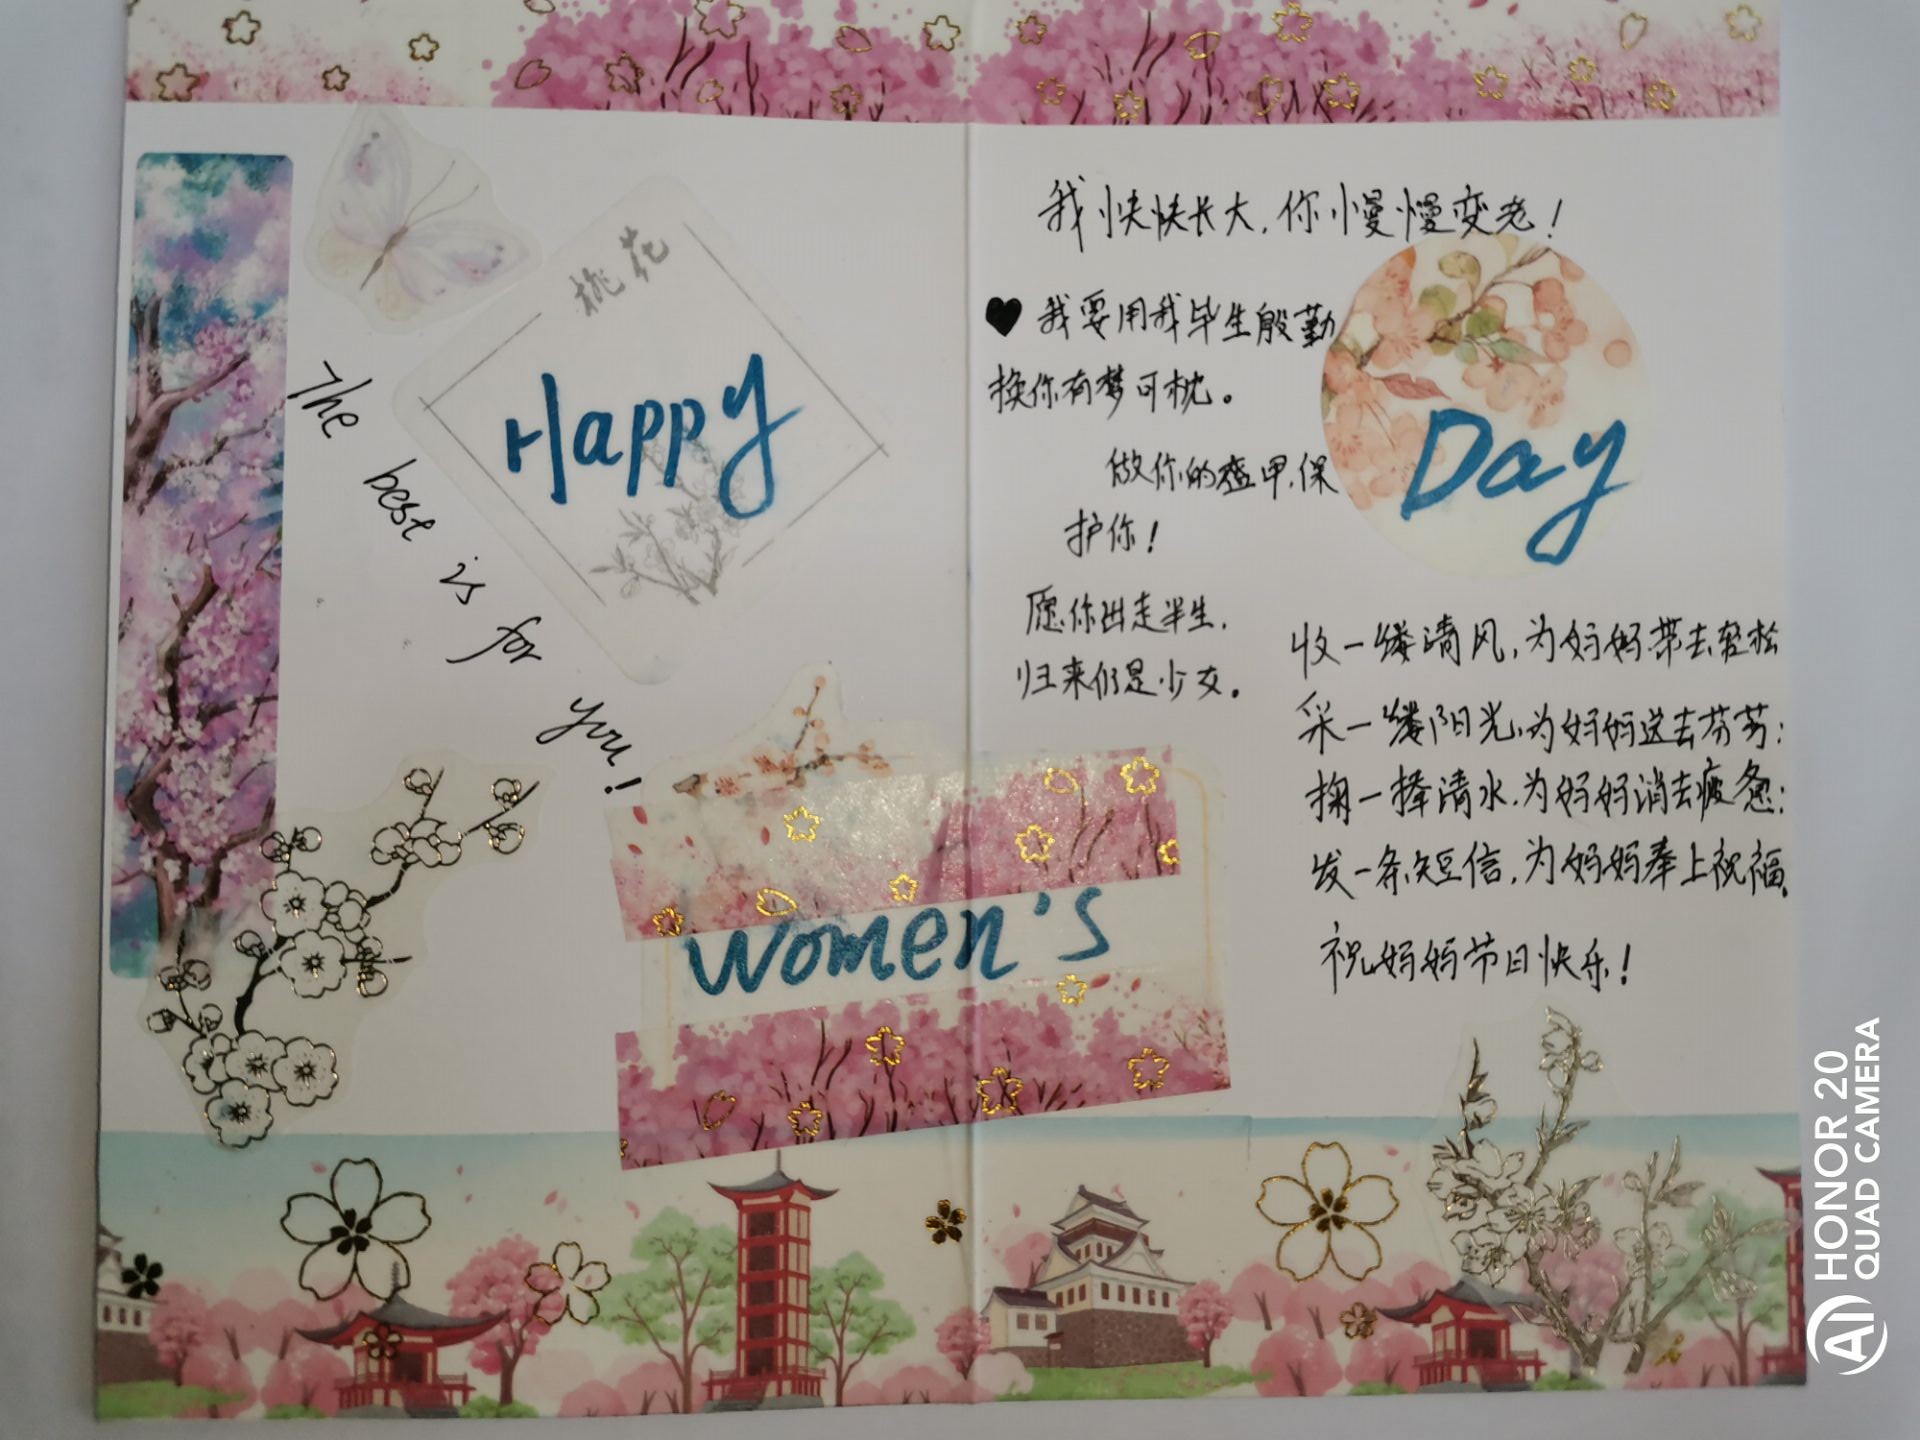 桃花
Happy
The best is for you!
Women's
Day
我快快长大,你慢慢变老!
♥我要用我毕生殷勤
换你有梦可枕。
做你的盔甲,保
护你!
愿你出走半生,
归来仍是少女。
收一缕清风,为妈妈带去轻松
采一缕阳光,为妈妈送去芬芳;
掬一捧清水,为妈妈消去疲惫;
发一条短信,为妈妈奉上祝福。
祝妈妈节日快乐!
AI HONOR 20
QUAD CAMERA